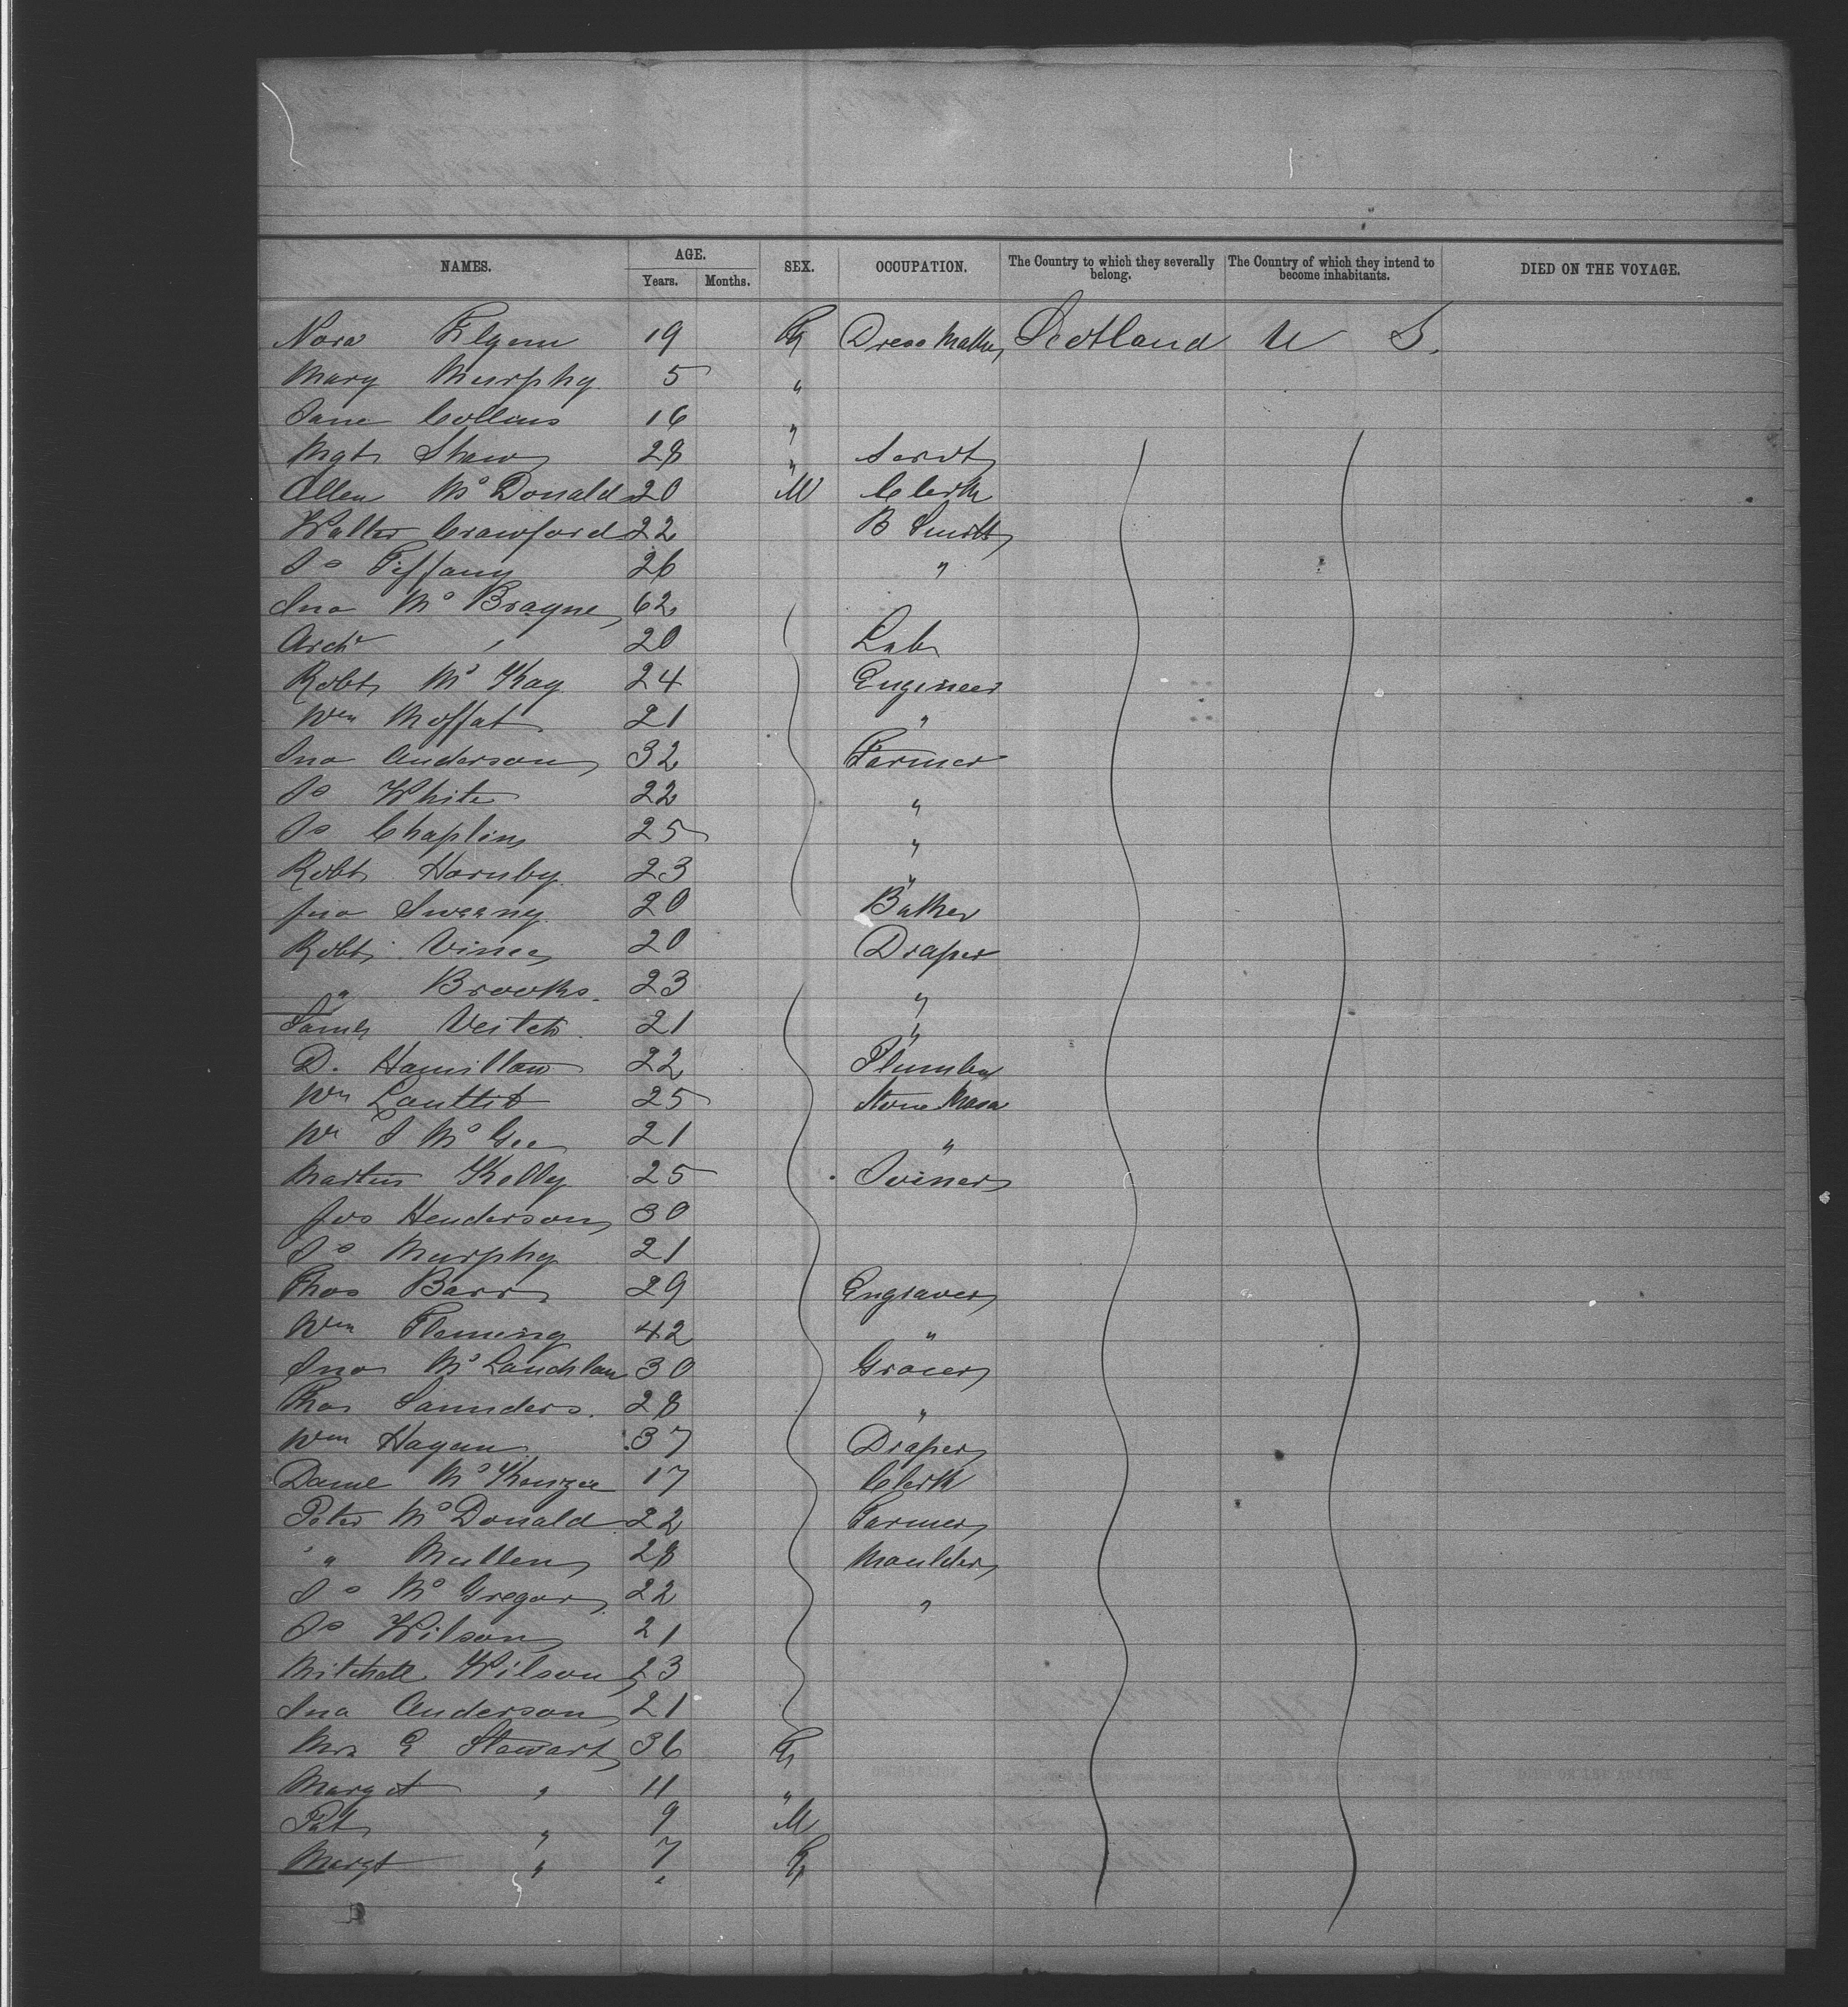 NAMES. AGE. Years. Months. SEX. OCCUPATION. The Country to which they severally belong. The Country of which they intend to become inhabitants. DIED ON THE VOYAGE.
Nora 19 F Dress Maker Scotland U S.
Mary Murphy 5 "
Jane Collins 16 "
Mgt Shaw 28 " Servt
Allen McDonald 20 M Clerk
Walter Crawford 22 B Smith
Js Tiffany 26 "
Jno McBrayne 62
Archd " 20 Lab
Robt McKay 24 Engineer
Wm Moffat 21 "
Jno Anderson 32 Farmer
Js White 22 "
Js Chaplin 25 "
Robt Hornby 23 "
Jno Sweeny 20 Baker
Robt Vince 20 Draper
" Brooks 23 "
Saml Veitch 21 "
D. Hamilton 22 Plumber
Wm Louttit 25 Stone Mason
Wm J McGee 21 "
Martin Kelly 25 Joiner
Jos Henderson 30
Js Murphy 21
Thos Barr 29 Engraver
Wm Fleming 42 "
Jno McLauchlan 30 Grocer
Thos Saunders 28 "
Wm Hagan 37 Draper
Danl McKenzie 17 Clerk
Peter McDonald 22 Farmer
" Mullen 28 Moulder
Js McGregor 22 "
Js Wilson 21
Mitchell Wilson 23
Jno Anderson 21
Mrs E Stewart 36 F
Margt " 11 "
Pat " 9 M
Margt " 7 F